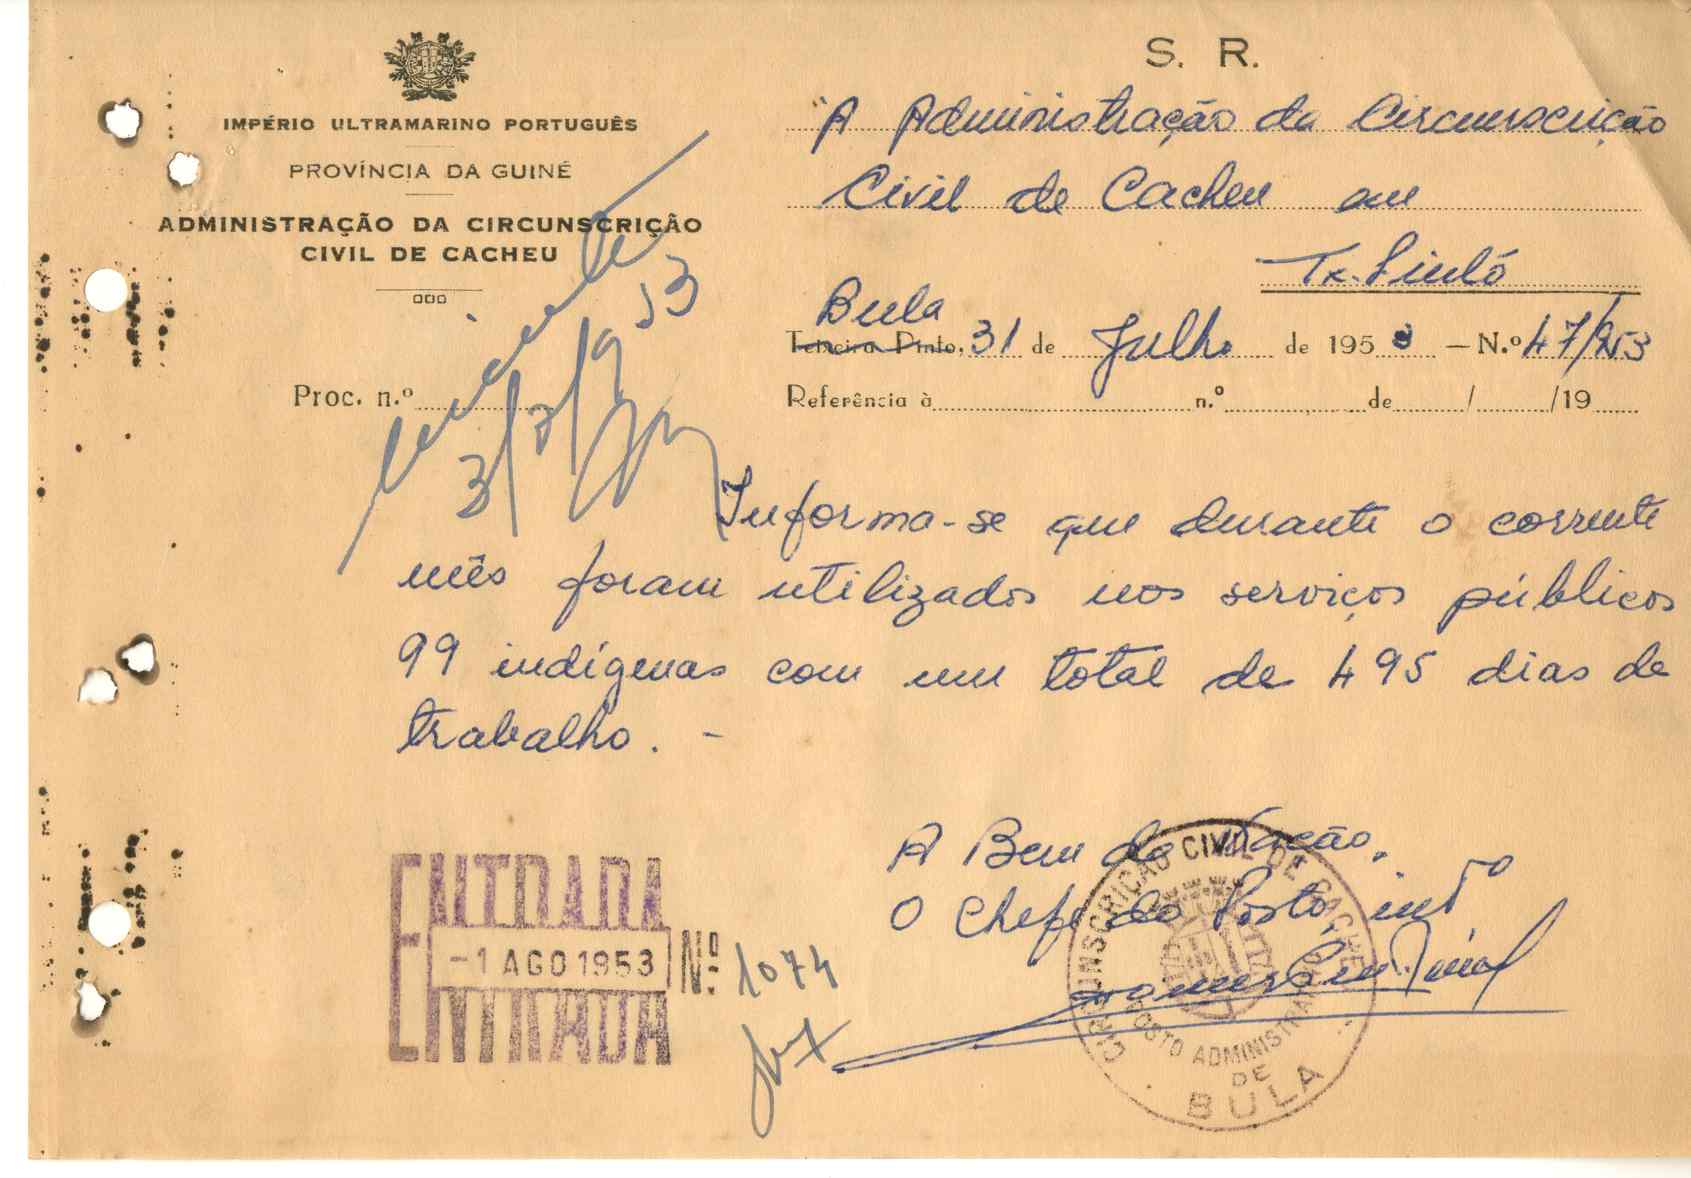 S. R.
IMPÉRIO ULTRAMARINO PORTUGUÊS
PROVÍNCIA DA GUINÉ
ADMINISTRAÇÃO DA CIRCUNSCRIÇÃO
CIVIL DE CACHEU
Proc. n.º
À Administração da Circunscrição
Civil de Cacheu em
Tx. Pintó
Bula
Teixeira Pinto, 31 de Julho de 1953 — N.º 47/953
Referência à n.º de / /19
Informa-se que durante o corrente
mês foram utilizados nos serviços públicos
99 indígenas com um total de 495 dias de
trabalho. -
A Bem da Nação.
O Chefe do Posto, intº
ENTRADA
-1 AGO 1953 Nº 1074
ENTRADA
CIRCUNSCRIÇÃO CIVIL DE CACHEU
POSTO ADMINISTRATIVO
DE
BULA